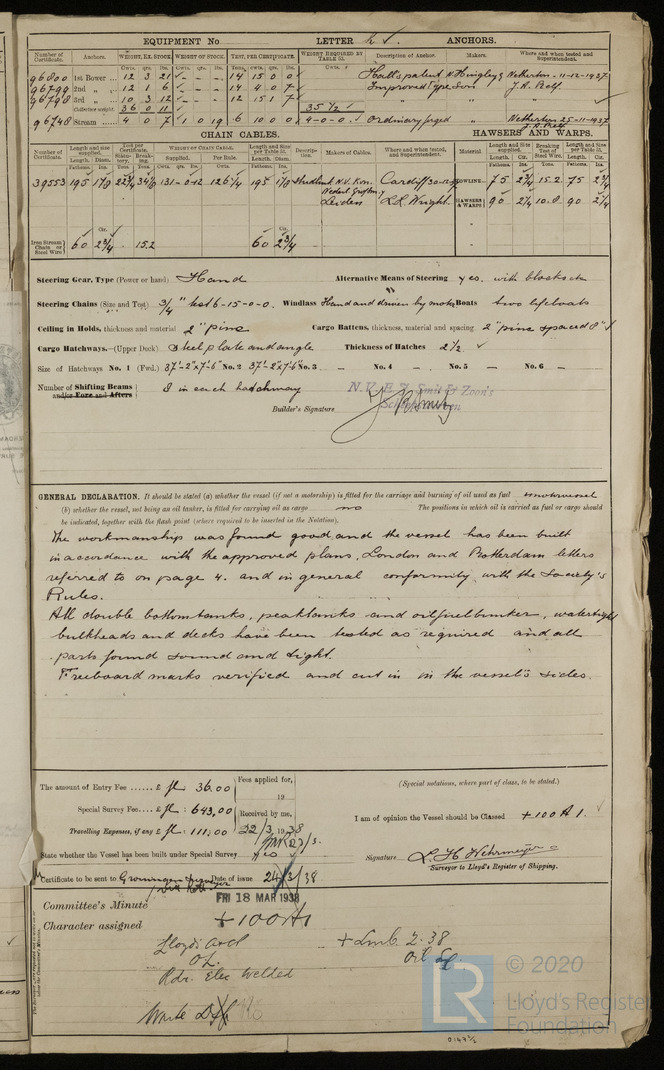 EQUIPMENT No LETTER h ✓ ANCHORS.
Number of Certificate. Anchors. WEIGHT, EX. STOCK. WEIGHT OF STOCK. TEST, PER CERTIFICATE. WEIGHT REQUIRED BY TABLE 53. Description of Anchor. Makers. Where and when tested and Superintendent.
Cwts. qrs. lbs. Cwts. qrs. lbs. Tons. cwts. qrs. lbs. Cwts.
96800 1st Bower ... 12 3 21 ✓ - - - 14 15 0 0 ✓ Hall's patent N. Hingley & Netherton - 11-12-1937
96799 2nd „ ... 12 1 6 ✓ - - - 14 4 0 7 ✓ Improved Type Son J. R. Relf.
96798 3rd „ ... 10 3 12 ✓ - - - 12 15 1 7 ✓ „ „ „
Collective weight 36 0 11 35 1/2 ✓
96748 Stream ... 4 0 7 ✓ 1 0 19 6 10 0 0 ✓ 4-0-0. ✓ Ordinary forged „ Netherton 25-11-1937
J. R. Relf
CHAIN CABLES. HAWSERS AND WARPS.
Number of Certificate. Length and size supplied. Test per Certificate. WEIGHT OF CHAIN CABLE. Length and size per Table 53. Description. Makers of Cables. Where and when tested, and Superintendent. Material. Length and Size supplied. Breaking Test of Steel Wire. Length and Size per Table 53.
39553 195 1 1/8 22 3/4 34 1/8 131-0-12 126 1/4 195 1 1/8 Studlink N.V. Kon. Cardiff TOWLINE 75 2 3/4 15.2 75 2 3/4
Leiden L.R. Wright. HAWSERS & WARPS 90 2 1/4 10.8 90 2 1/4
Iron Stream Chain or Steel Wire 60 2 3/4 15.2 60 2 3/4
Steering Gear, Type (Power or hand) Hand Alternative Means of Steering yes. with blocks etc
Steering Chains (Size and Test) 3/4" test 6-15-0-0. Windlass Hand and driven by motor Boats two lifeboats
Ceiling in Holds, thickness and material 2" pine Cargo Battens, thickness, material and spacing 2" pine spaced 8"
Cargo Hatchways.—(Upper Deck) Steel plate and angle Thickness of Hatches 2 1/2 ✓
Size of Hatchways No. 1 (Fwd.) 37'-2"x7'-6" No. 2 37'-2"x7'-6" No. 3 - No. 4 - No. 5 - No. 6 -
Number of Shifting Beams and/or Fore and Afters 8 in each hatchway
N.V. E. J. Smit & Zoon's
Builder's Signature J. Smit
GENERAL DECLARATION. It should be stated (a) whether the vessel (if not a motorship) is fitted for the carriage and burning of oil used as fuel motorvessel
(b) whether the vessel, not being an oil tanker, is fitted for carrying oil as cargo no The positions in which oil is carried as fuel or cargo should
be indicated, together with the flash point (where required to be inserted in the Notation).
The workmanship was found good and the vessel has been built
in accordance with the approved plans, London and Rotterdam letters
referred to on page 4. and in general conformity with the Society's
Rules.
All double bottom tanks, peak tanks and oil fuel bunker, watertight
bulkheads and decks have been tested as required and all
parts found sound and tight.
Freeboard marks verified and cut in in the vessel's sides.
The amount of Entry Fee ...... £ fl 36.00
Fees applied for,
19
(Special notations, where part of class, to be stated.)
Special Survey Fee.... £ fl: 643,00
Received by me,
I am of opinion the Vessel should be Classed +100 A 1.
Travelling Expenses, if any £ fl: 111,00 22/3 1938
State whether the Vessel has been built under Special Survey yes
Signature L. H. Wehrmeyer
Surveyor to Lloyd's Register of Shipping.
Certificate to be sent to Groningen Date of issue 24/3/38
Committee's Minute FRI 18 MAR 1938
Character assigned +100A1
Lloyd's A&CP + LMC 2.38
OL. Oil
Rdr. Elec Welded
© 2020
Lloyd's Register
Foundation